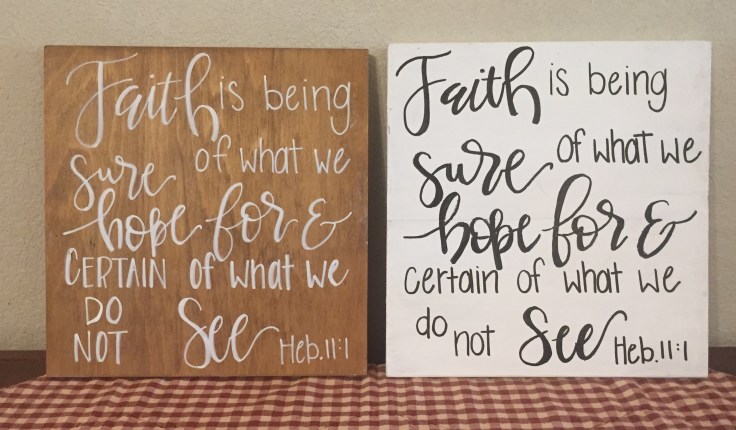 Faith is being
sure of what we
hope for &
CERTAIN of what we
DO
NOT See Heb.11:1
Faith is being
sure of what we
hope for &
certain of what we
do not See Heb.11:1